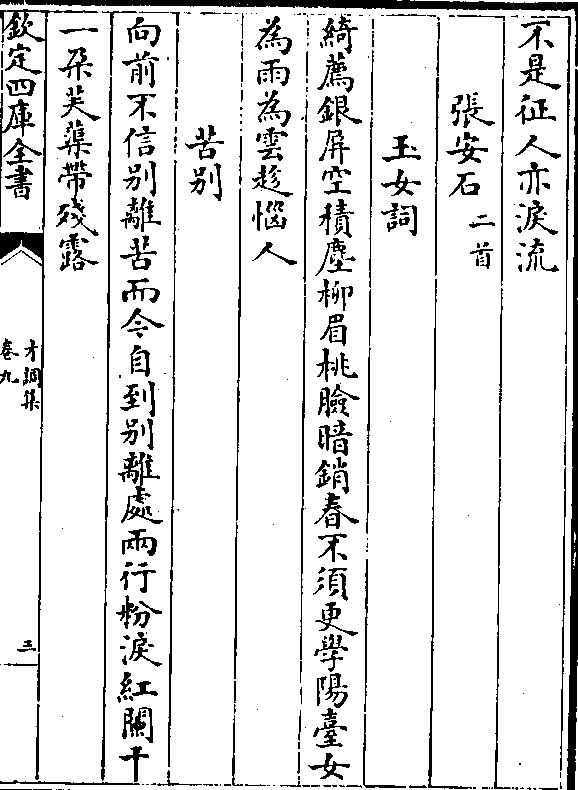 不是征人亦淚流
張安石二首
玉女詞
綺薦銀屏空積塵柳眉桃臉暗銷春不須更學陽臺女
為雨為雲趁惱人
苦别
向前不信别離苦而今自到别離處兩行粉淚紅闌干
一朶芙蕖帶殘露
欽定四庫全書
才調集
卷九
三